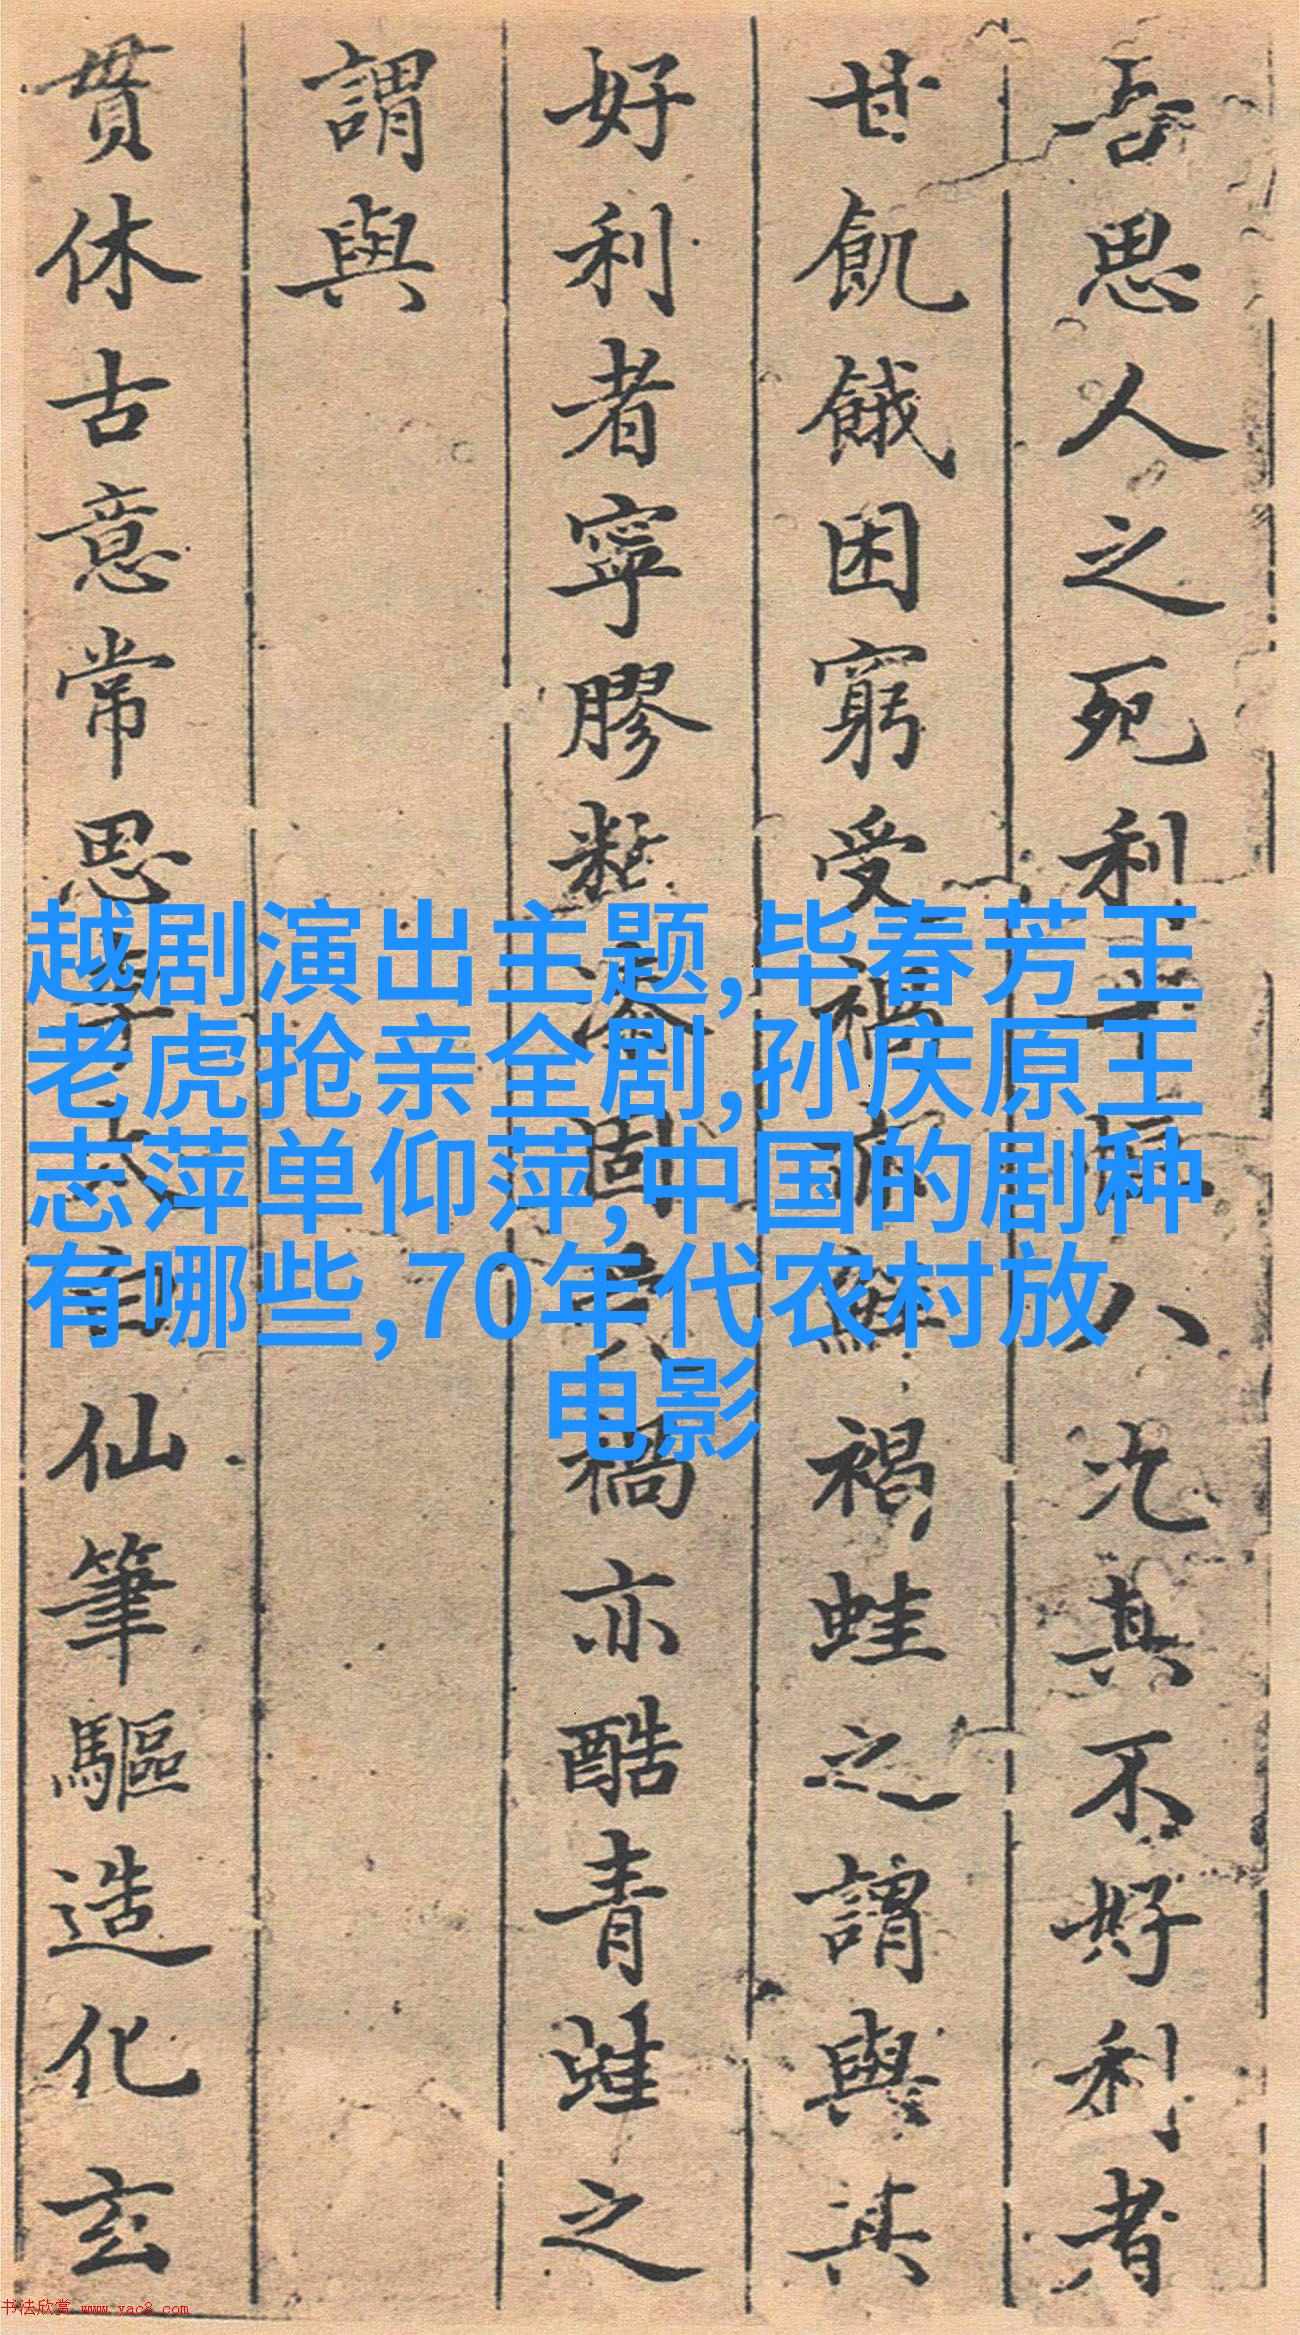 吾思人之死利十恒八况其不好利者
甘飢餓困窮受禍
褐蛙之謂與其
好利者寧膠
固
禍亦酷青蛙之
謂與
貫休古意常思
仙筆驅造化玄
越剧演出主题,毕春芳王
老虎抢亲全剧,孙庆原王
志萍单仰萍,中国的剧种
有哪些,70年代农村放
电影
书法欣赏 www.yac8.com